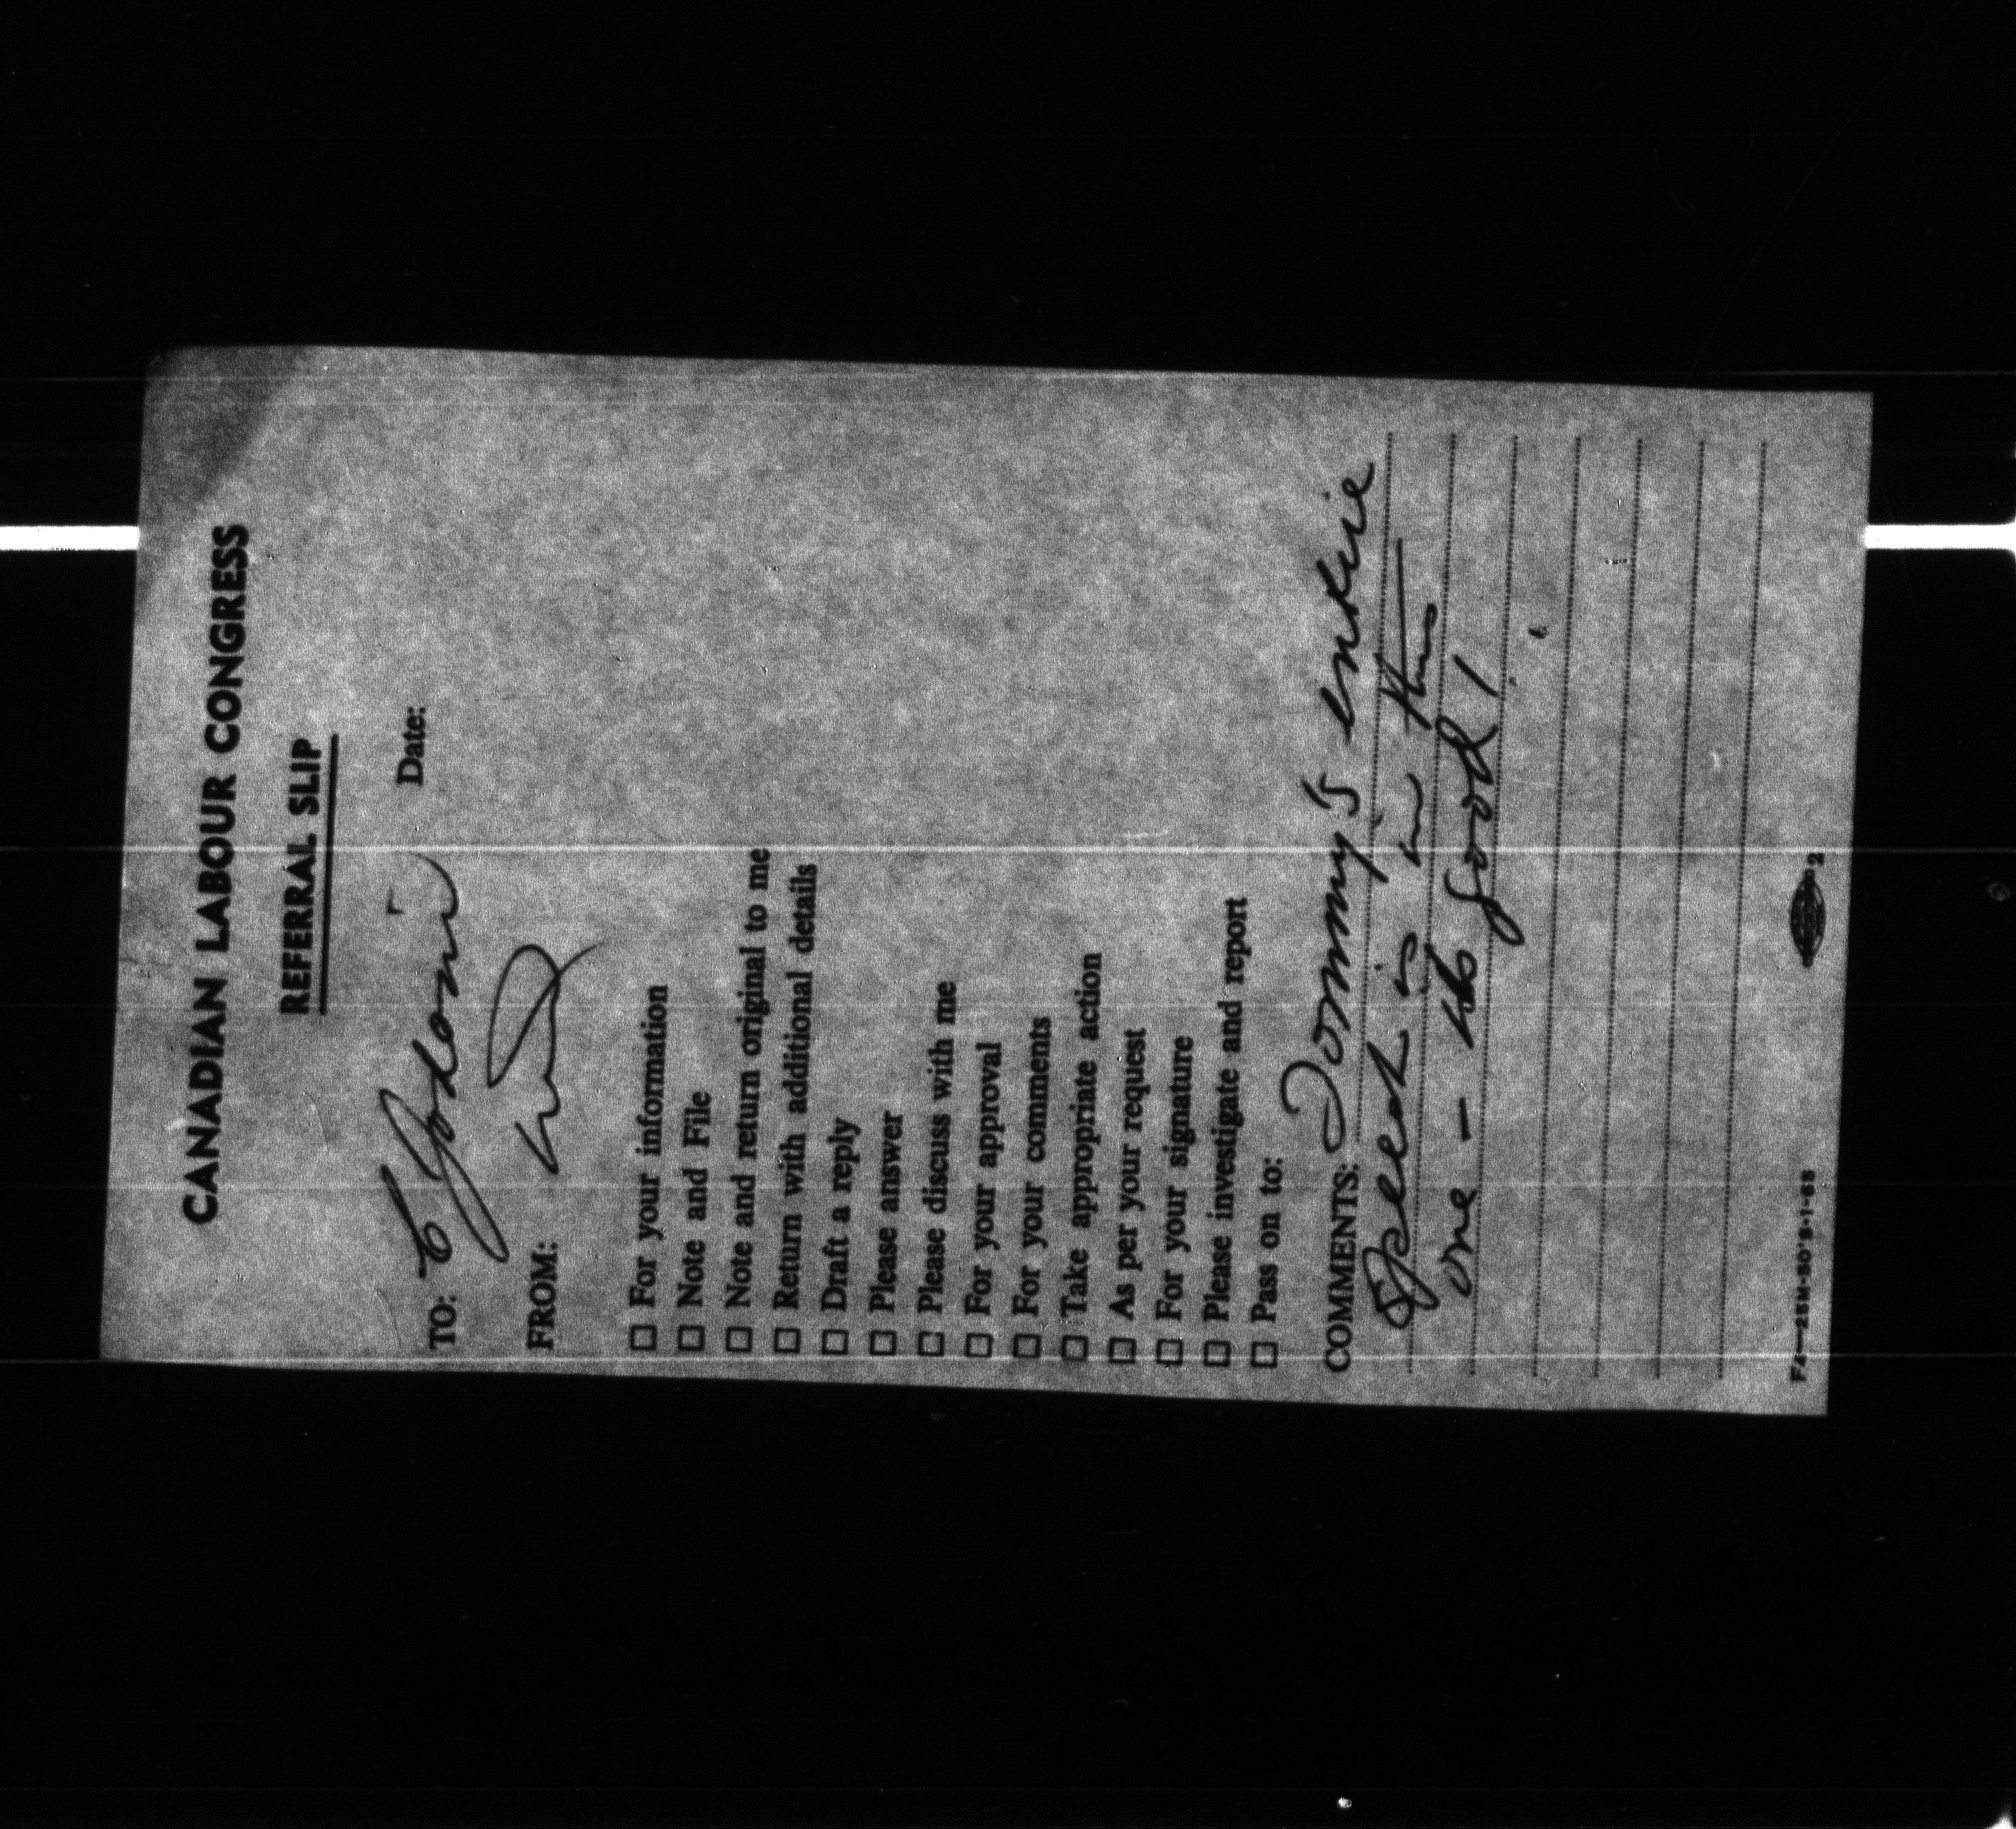 CANADIAN LABOUR CONGRESS
REFERRAL SLIP
TO: Date:
FROM:
☐ For your information
☐ Note and File
☐ Note and return original to me
☐ Return with additional details
☐ Draft a reply
☐ Please answer
☐ Please discuss with me
☐ For your approval
☐ For your comments
☐ Take appropriate action
☐ As per your request
☐ For your signature
☐ Please investigate and report
☐ Pass on to:
COMMENTS: Tommy's entire
Speech is in this
one - its good!
2